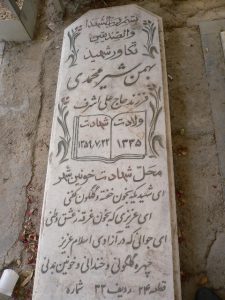 والصدیقین
تکاور شهید
بهمن شیرمحمدی
فرزند حاج علی اشرف
ولادت شهادت
۱۳۳۵ ۱۳۵۹/۷/۲۲
محل شهادت خونین شهر
ای شهید بکه بخون خفته و گلگون کفنی
ای عزیزی که بخون غرقه و عشق وطنی
ای جوانی که در آزادی اسلام عزیز
چهره گلگونی و خندانی و خونین بدنی
قطعه ۲۴ ردیف ۳۳ شماره